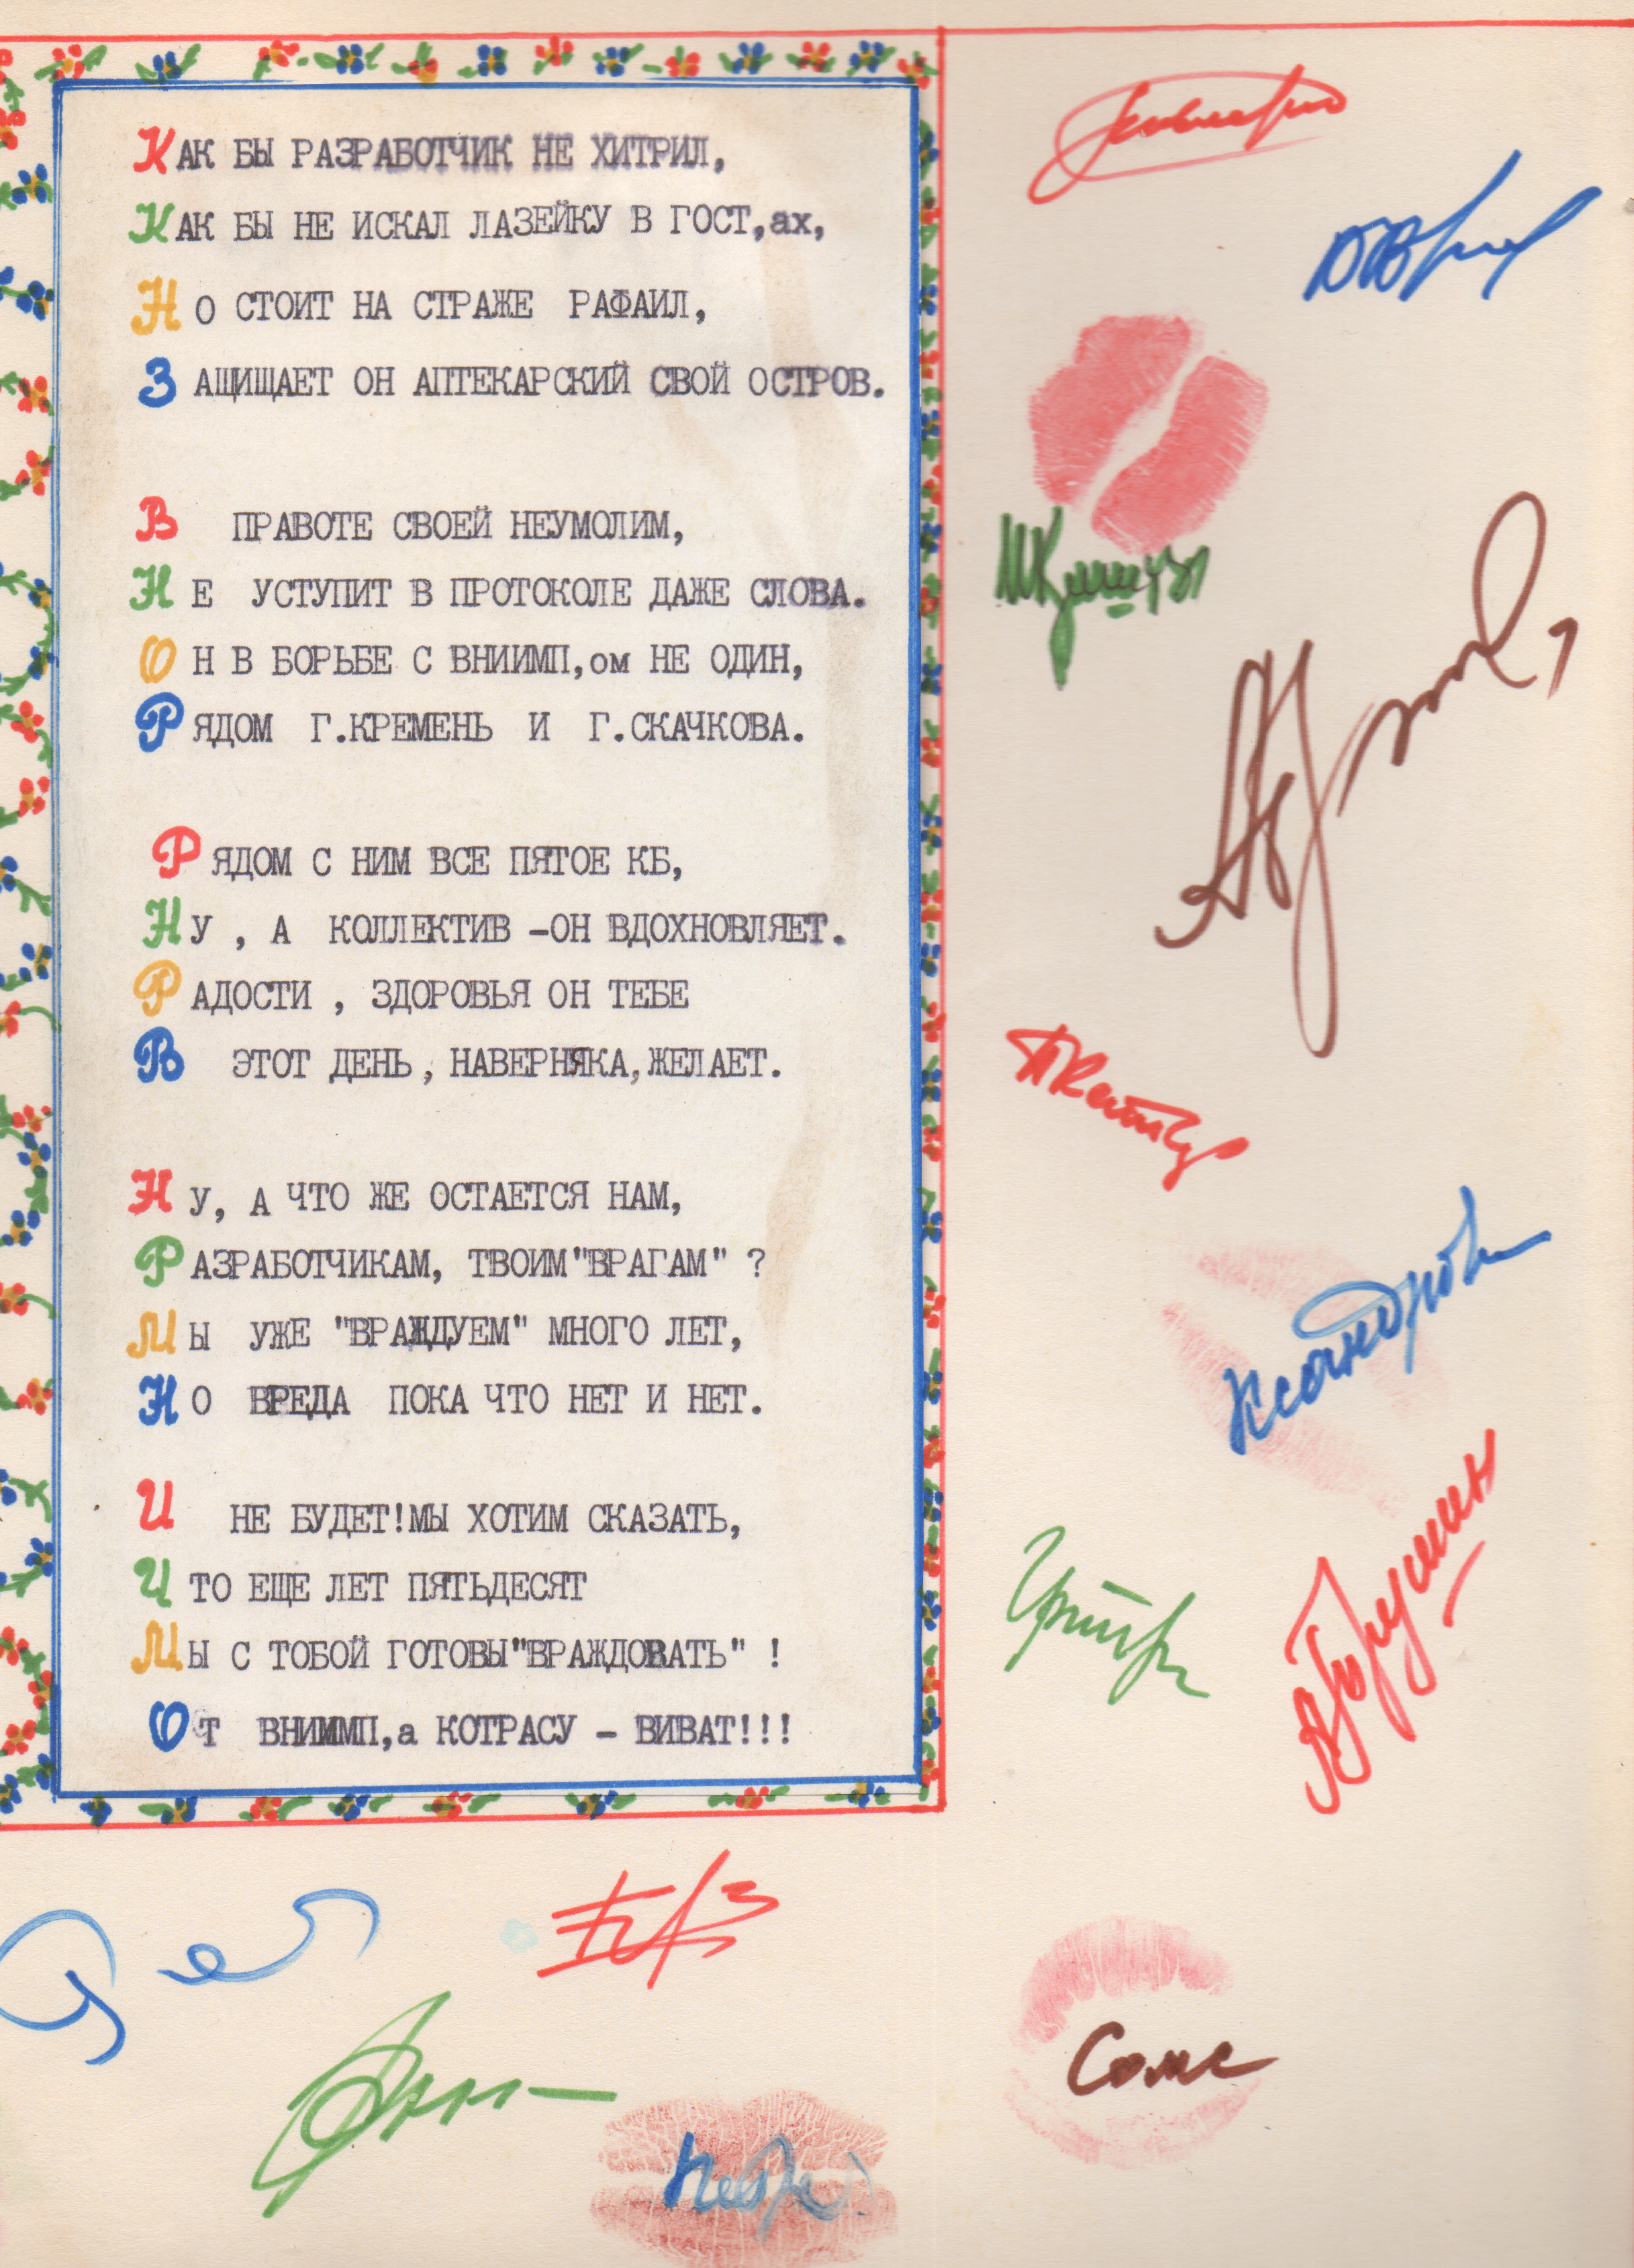 КАК БЫ РАЗРАБОТЧИК НЕ ХИТРИЛ,
КАК БЫ НЕ ИСКАЛ ЛАЗЕЙКУ В ГОСТ,ах,
НО СТОИТ НА СТРАЖЕ РАФАИЛ,
ЗАЩИЩАЕТ ОН АПТЕКАРСКИЙ СВОЙ ОСТРОВ.
В ПРАВОТЕ СВОЕЙ НЕУМОЛИМ,
НЕ УСТУПИТ В ПРОТОКОЛЕ ДАЖЕ СЛОВА.
ОН В БОРЬБЕ С ВНИИМП,ом НЕ ОДИН,
РЯДОМ Г.КРЕМЕНЬ И Г.СКАЧКОВА.
РЯДОМ С НИМ ВСЕ ПЯТОЕ КБ,
НУ , А КОЛЛЕКТИВ -ОН ВДОХНОВЛЯЕТ.
РАДОСТИ , ЗДОРОВЬЯ ОН ТЕБЕ
В ЭТОТ ДЕНЬ , НАВЕРНЯКА,ЖЕЛАЕТ.
НУ, А ЧТО ЖЕ ОСТАЕТСЯ НАМ,
РАЗРАБОТЧИКАМ, ТВОИМ"ВРАГАМ" ?
МЫ УЖЕ "ВРАЖДУЕМ" МНОГО ЛЕТ,
НО ВРЕДА ПОКА ЧТО НЕТ И НЕТ.
И НЕ БУДЕТ!МЫ ХОТИМ СКАЗАТЬ,
ЧТО ЕЩЕ ЛЕТ ПЯТЬДЕСЯТ
МЫ С ТОБОЙ ГОТОВЫ"ВРАЖДОВАТЬ" !
ОТ ВНИИМП,а КОТРАСУ - ВИВАТ!!!